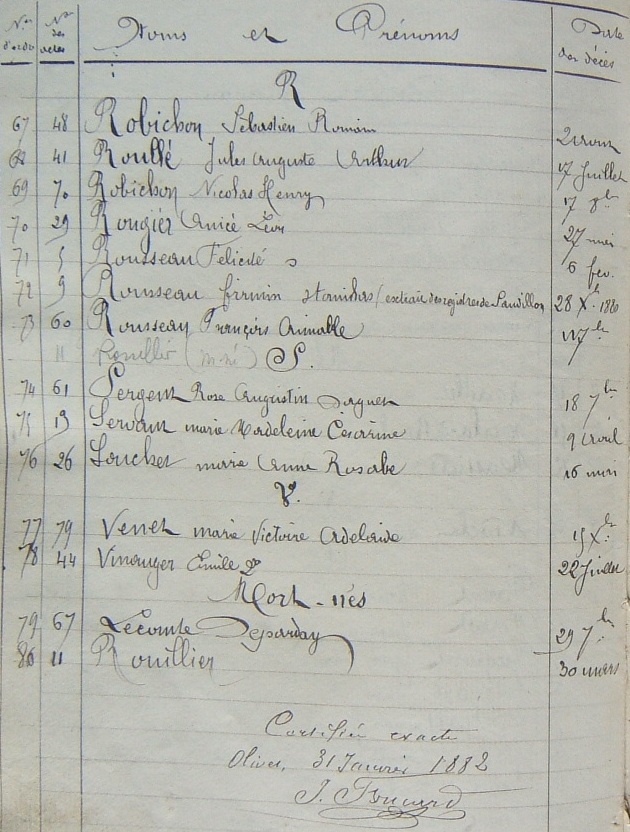 Nos d'ordre Nos des actes Noms et Prénoms Date des décès
R
67 48 Robichon Sébastien Romain 2 aout
68 41 Roullé Jules Auguste Arthur 17 Juillet
69 70 Robichon Nicolas Henry 17 8bre
70 29 Rougier Anicé Léon 27 mai
71 5 Rousseau Félicité 6 fev.
72 9 Rousseau firmin Stanislas (extrait des registres de Sandillon 28 Xbre 1880
73 60 Rousseau François Aimable 7bre
11 Rouillier (m. né) S.
74 61 Sergent Rose Augustin 18 7bre
75 19 Servant marie Madeleine Césarine 9 Avril
76 26 Souchet marie Anne Rosalie 16 mai
V.
77 79 Venet marie Victoire Adelaide 15 Xbre
78 44 Vinauger Emile 22 Juillet
Mort-nés
79 67 Lecomte Deparday 29 7bre
80 11 Rouillier 30 mars
Certifiée exacte
Olivet, 31 Janvier 1882